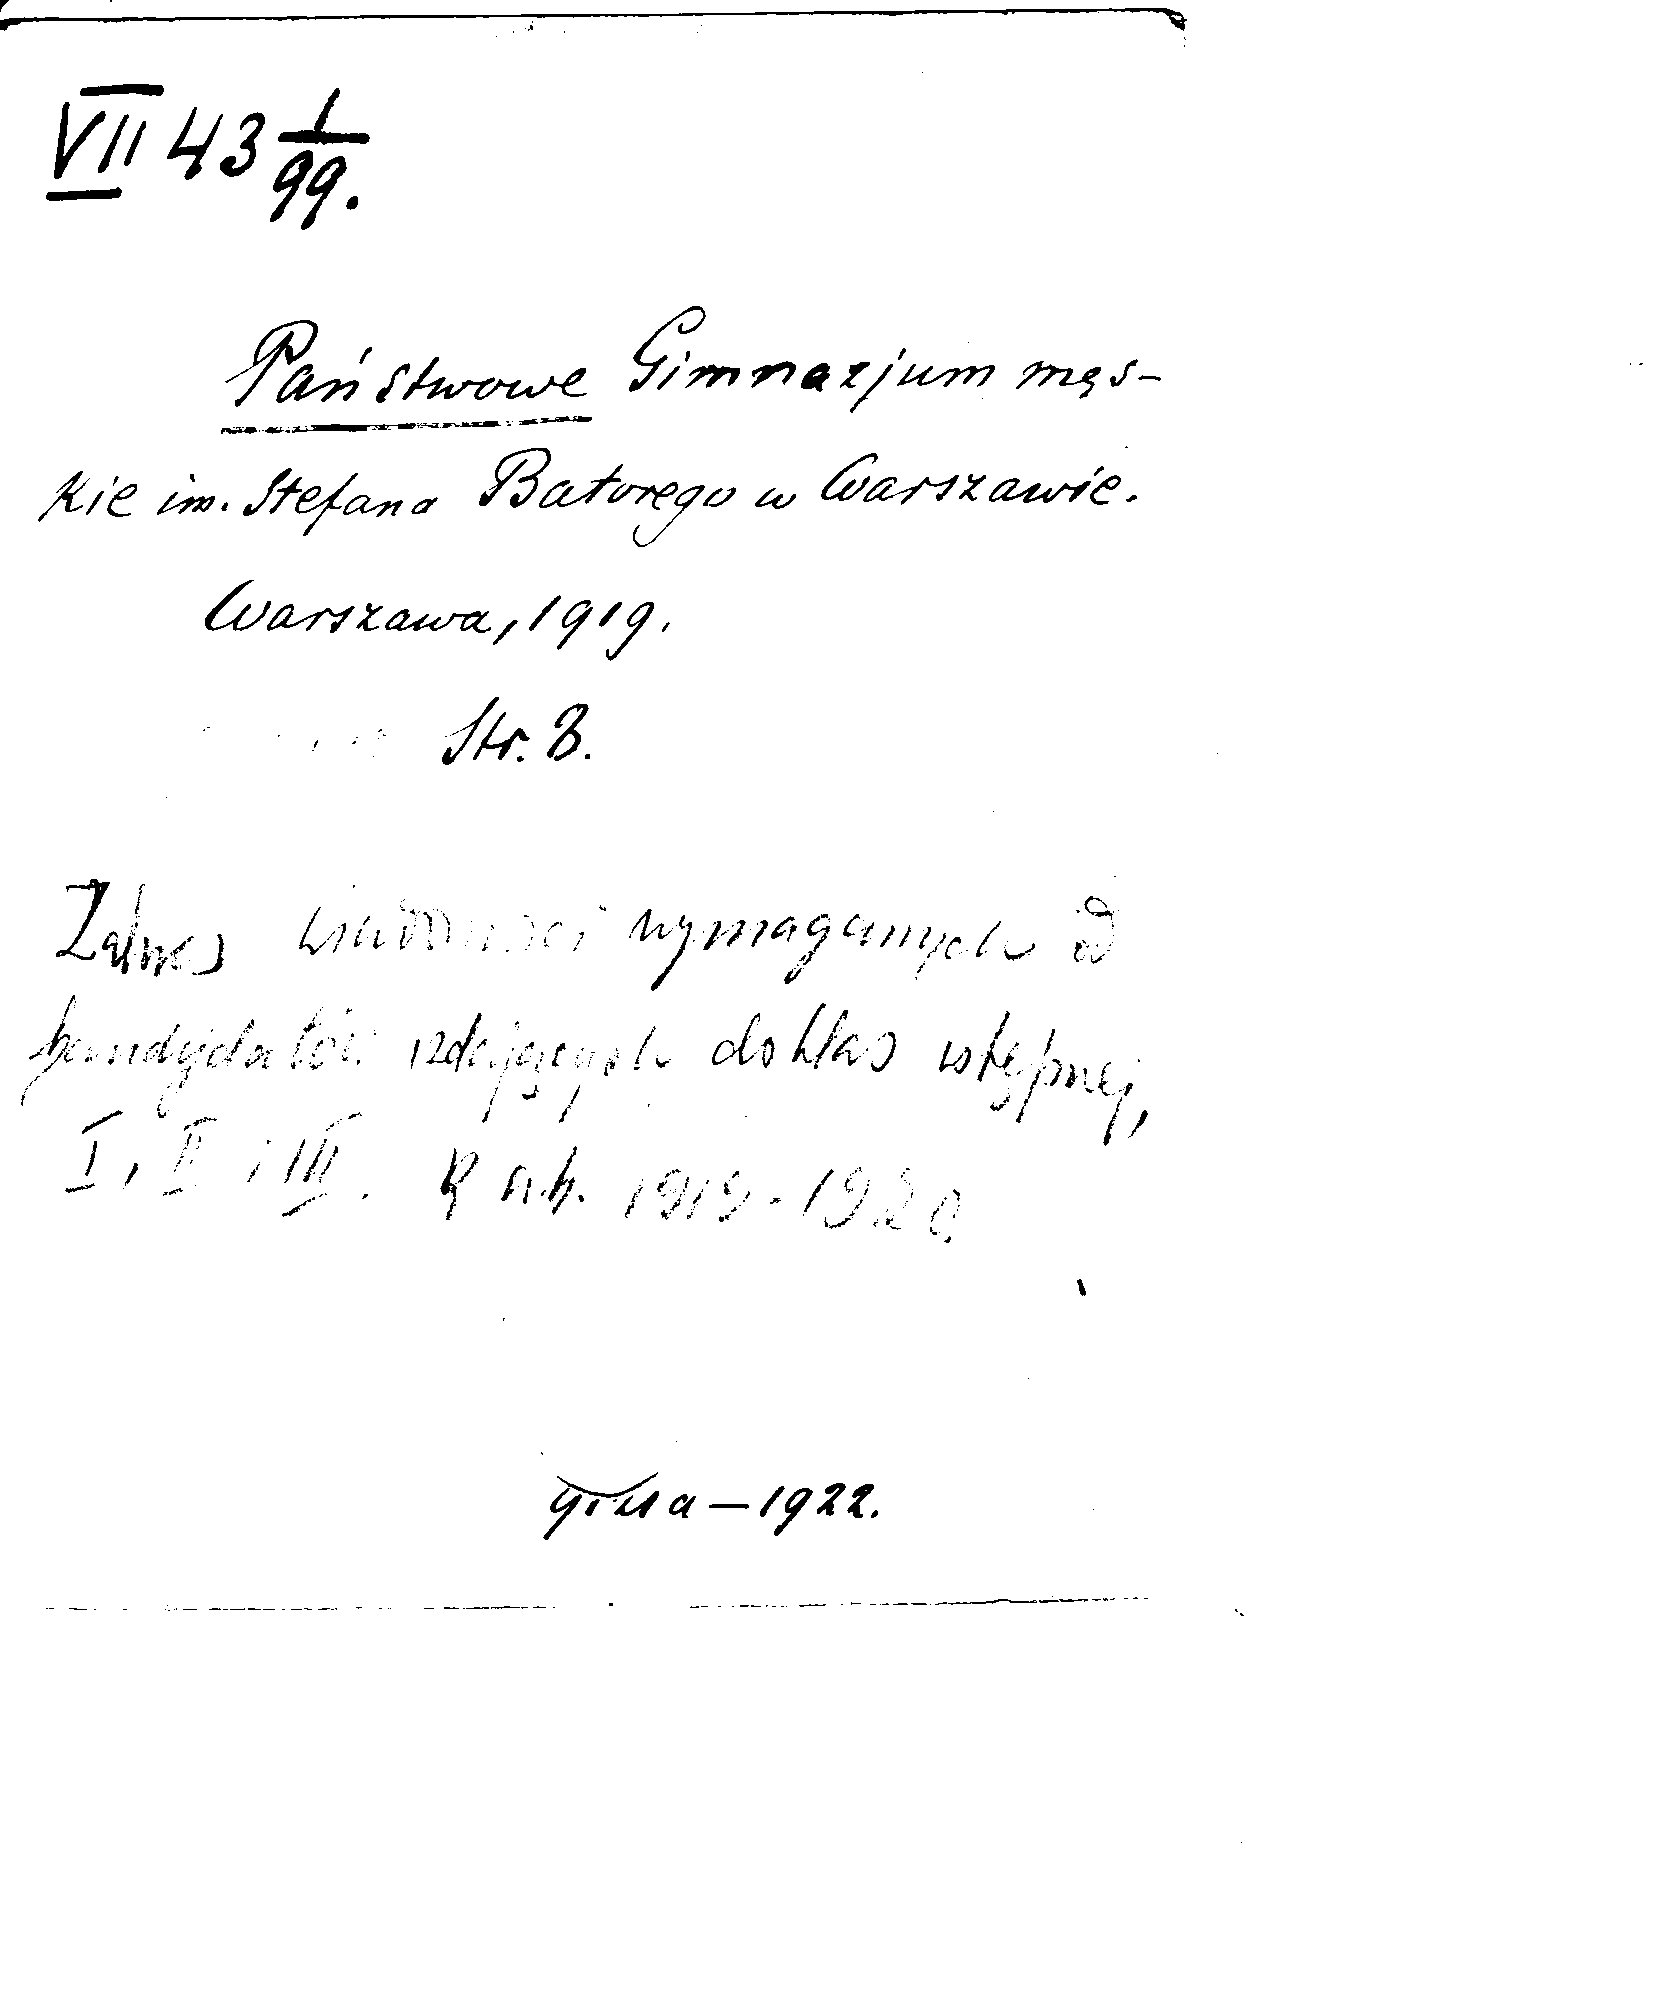 VII 43 1/99.
Państwowe Gimnazjum męs-
kie im. Stefana Batorego w Warszawie.
Warszawa, 1919.
Str. 8.
Zakres wiadomości wymaganych od
kandydatów zdających do klas wstępnej,
I, II i III. R. szk. 1919-1920.
1922.